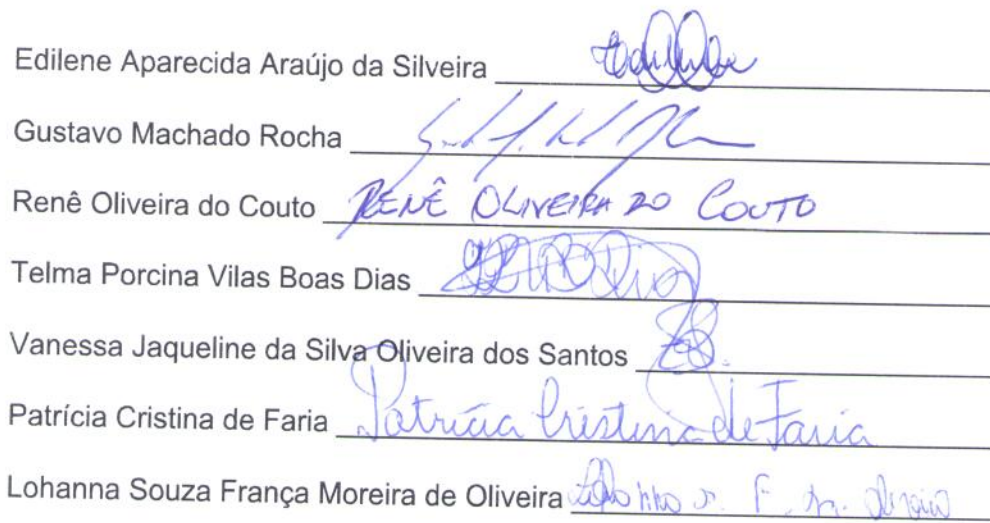 Edilene Aparecida Araújo da Silveira
Gustavo Machado Rocha
Renê Oliveira do Couto RENÊ OLIVEIRA DO COUTO
Telma Porcina Vilas Boas Dias
Vanessa Jaqueline da Silva Oliveira dos Santos
Patrícia Cristina de Faria Patrícia Cristina de Faria
Lohanna Souza França Moreira de Oliveira